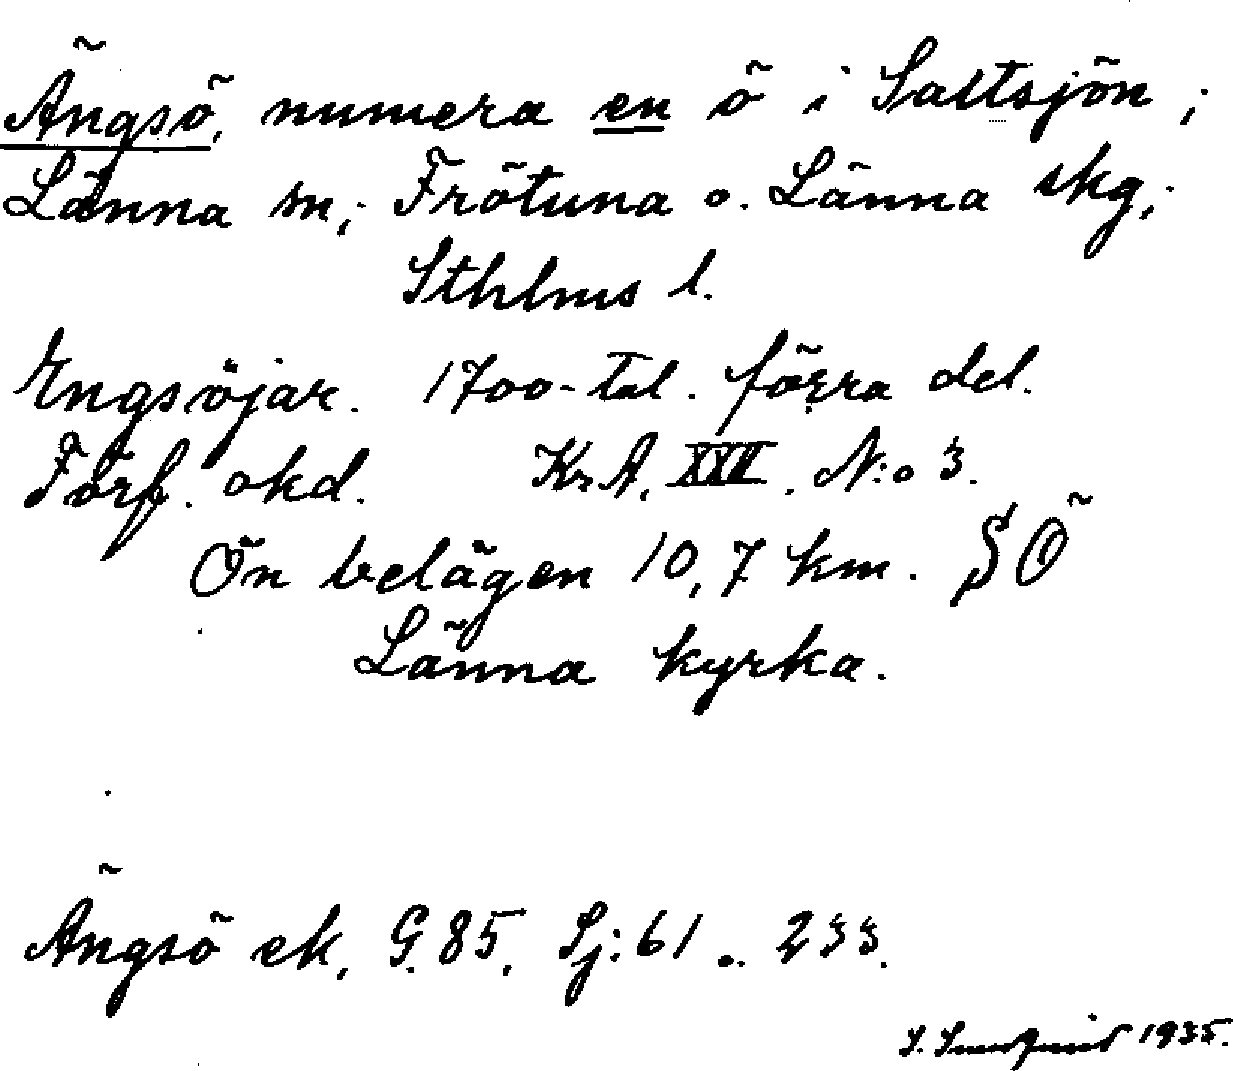 Ängsö, numera en ö i Saltsjön;
Länna sn; Frötuna o. Länna skg;
Sthlms l.
Engsöjar. 1700-tal. förra del.
Förf. okd. Kr.A. XXII. N:o 3.
Ön belägen 10,7 km. SÖ
Länna kyrka.
Ängsö ek. G. 85. Sj: 61 o. 233.
1935.